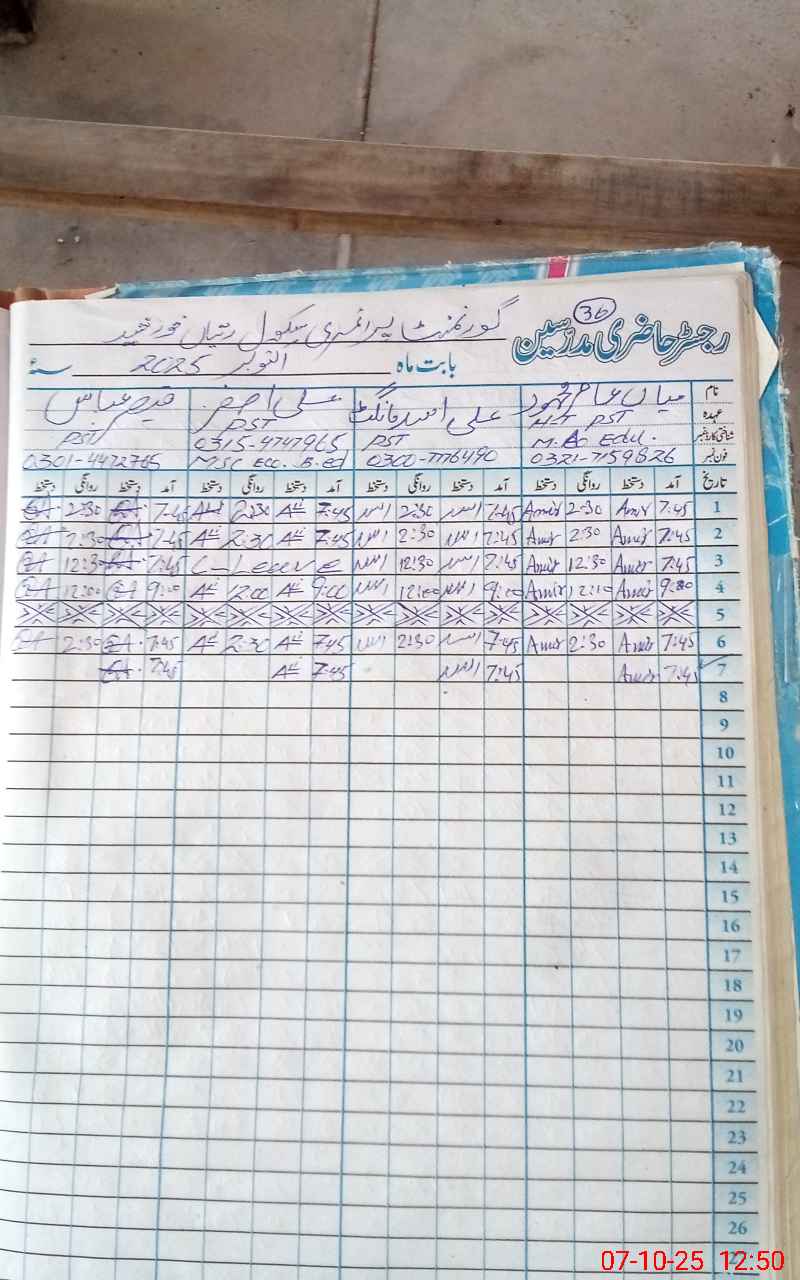 36
رجسٹر حاضری مدرسین گورنمنٹ پرائمری سکول
بابت ماہ اکتوبر 2025 سنہ
نام میاں عامر علی اسد علی اصغر قیصر عباس
عہدہ H-T PST PST PST PST
شناختی کارڈ نمبر M.A Edu. 0315-4747965
فون نمبر 0321-7159826 0300-7776490 MSc Eco. B.ed 0301-4472765
تاریخ آمد دستخط روانگی دستخط آمد دستخط روانگی دستخط آمد دستخط روانگی دستخط آمد دستخط روانگی دستخط
1 7:45 Amir 2:30 Amir 7:45 اسد 2:30 اسد 7:45 2:30 7:45 2:30
2 7:45 Amir 2:30 Amir 7:45 اسد 2:30 اسد 7:45 2:30 7:45 2:30
3 7:45 Amir 12:30 Amir 7:45 اسد 12:30 اسد C-Leave 7:45 12:30
4 9:00 Amir 12:10 Amir 9:00 اسد 12:00 اسد 9:00 12:00 9:00 12:00
5
6 7:45 Amir 2:30 Amir 7:45 اسد 2:30 اسد 7:45 2:30 7:45 2:30
7 7:45 Amir 7:45 اسد 7:45 7:45
8
9
10
11
12
13
14
15
16
17
18
19
20
21
22
23
24
25
26
27
07-10-25 12:50